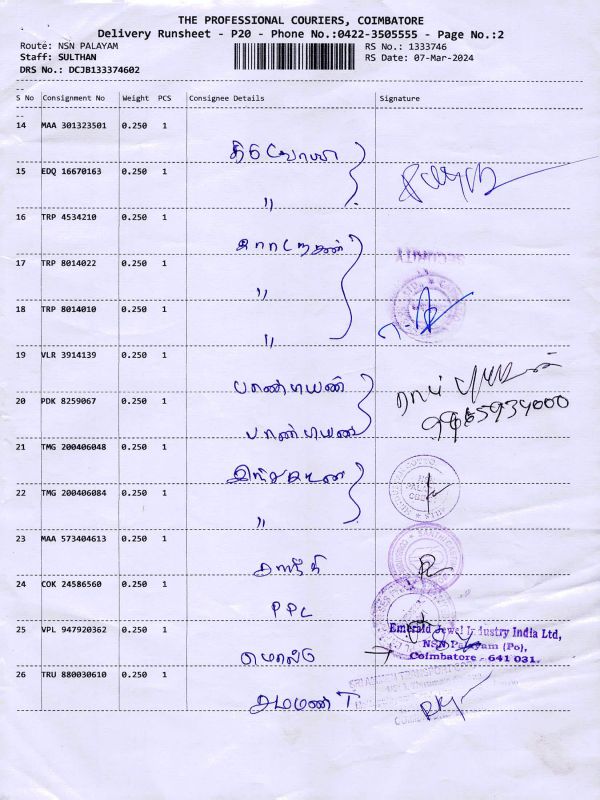 THE PROFESSIONAL COURIERS, COIMBATORE
Delivery Runsheet - P20 - Phone No.:0422-3505555 - Page No.:2
Route: NSN PALAYAM RS No.: 1333746
Staff: SULTHAN RS Date: 07-Mar-2024
DRS No.: DCJB133374602
S No Consignment No Weight PCS Consignee Details Signature
14 MAA 301323501 0.250 1
15 EDQ 16670163 0.250 1
"
16 TRP 4534210 0.250 1
SECURITY
17 TRP 8014022 0.250 1
"
18 TRP 8014010 0.250 1
"
19 VLR 3914139 0.250 1
பாண்டியன்
20 PDK 8259067 0.250 1
பாண்டியன்
21 TMG 200406048 0.250 1
22 TMG 200406084 0.250 1
"
23 MAA 573404613 0.250 1
சாந்தி
24 COK 24586560 0.250 1
PPC
25 VPL 947920362 0.250 1
Emerald Jewel Industry India Ltd,
NSN Palayam (Po),
Coimbatore - 641 031.
26 TRU 880030610 0.250 1